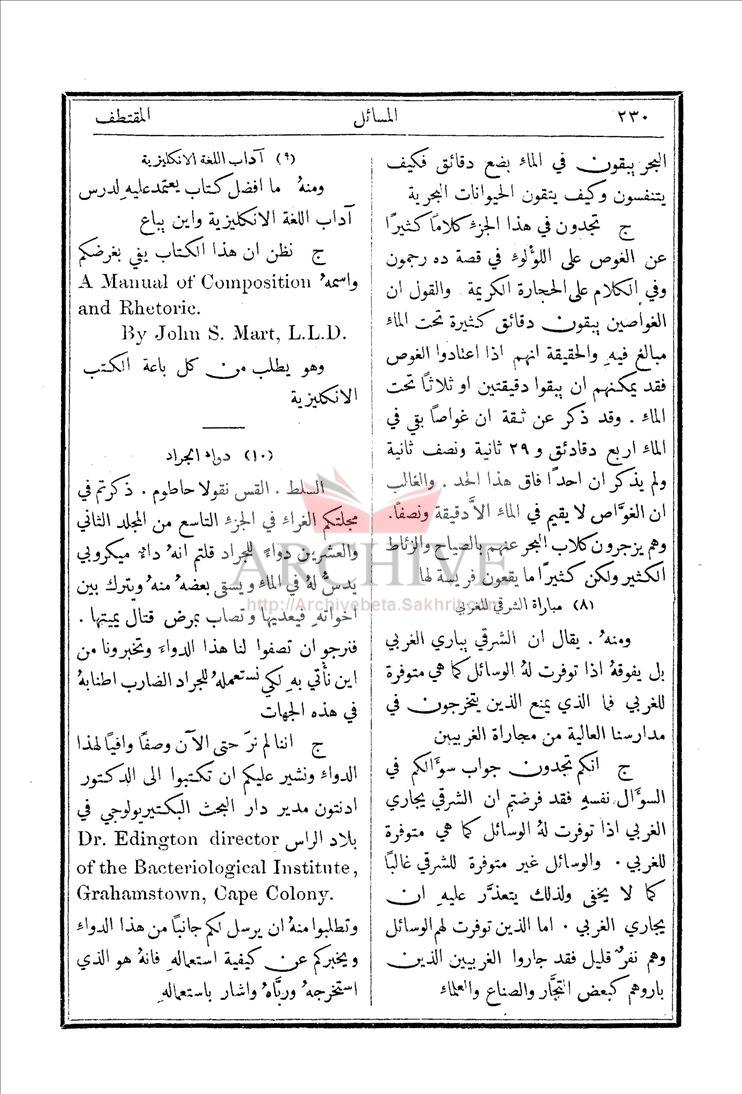 ٢٣٠ المسائل المقتطف
البحر يبقون في الماءِ بضع دقائق فكيف
يتنفسون وكيف يتقون الحيوانات البحرية
ج تجدون في هذا الجزءِ كلامًا كثيرًا
عن الغوص على اللوُّلوءِ في قصة ده رجمون
وفي الكلام على الحجارة الكريمة والقول ان
الغواصين يبقون دقائق كثيرة تحت الماءِ
مبالغ فيهِ والحقيقة انهم اذا اعتادوا الغوص
فقد يمكنهم ان يبقوا دقيقتين او ثلاثًا تحت
الماءِ . وقد ذكر عن ثقة ان غواصًا بقي في
الماءِ اربع دقادئق و ٢٩ ثانية ونصف ثانية
ولم يذكر ان احدًا فاق هذا الحد . والغالب
ان الغوَّاص لا يقيم في الماءِ الاَّ دقيقة ونصفًا .
وهم يزجرون كلاب البحر عنهم بالصياح والزئاط
الكثير ولكن كثيرًا ما يقعون فريسة لها
(٨) مباراة الشرقي للغربي
ومنهُ . يقال ان الشرقي يباري الغربي
بل يفوقهُ اذا توفرت لهُ الوسائل كما هي متوفرة
للغربي فما الذي يمنع الذين يتخرجون في
مدارسنا العالية من مجاراة الغربيين
ج انكم تجدون جواب سوَّالكم في
السوَّال نفسهِ فقد فرضتم ان الشرقي يجاري
الغربي اذا توفرت لهُ الوسائل كما هي متوفرة
للغربي . والوسائل غير متوفرة للشرقي غالبًا
كما لا يخفى ولذلك يتعذَّر عليهِ ان
يجاري الغربي . اما الذين توفرت لهم الوسائل
وهم نفرٌ قليل فقد جاروا الغربيين الذين
باروهم كبعض التجَّار والصناع والعلماءِ
(٩) آداب اللغة الانكليزية
ومنهُ ما افضل كتاب يعتمد عليهِ لدرس
آداب اللغة الانكليزية واين يباع
ج نظن ان هذا الكتاب يفي بغرضكم
واسمهُ A Manual of Composition
and Rhetoric.
By John S. Mart, L.L.D.
وهو يطلب من كل باعة الكتب
الانكليزية
(١٠) دواء الجراد
السلط . القس نقولا حاطوم . ذكرتم في
مجلتكم الغراء في الجزءِ التاسع من المجلد الثاني
والعشرين دواءً للجراد قلتم انهُ داءٌ ميكروبي
يدسُّ لهُ في الماءِ ويسقى بعضهُ منهُ ويترك بين
اخوانهِ فيعديها وتصاب بمرض قتال يميتها .
فنرجو ان تصفوا لنا هذا الدواءَ وتخبرونا من
اين نأتي بهِ لكي نستعملهُ للجراد الضارب اطنابهُ
في هذه الجهات
ج اننا لم نرَ حتى الآن وصفًا وافيًا لهذا
الدواء ونشير عليكم ان تكتبوا الى الدكتور
ادنتون مدير دار البحث البكتيريولوجي في
بلاد الراس Dr. Edington director
of the Bacteriological Institute,
Grahamstown, Cape Colony.
وتطلبوا منهُ ان يرسل لكم جانبًا من هذا الدواء
ويخبركم عن كيفية استعمالهِ فانهُ هو الذي
استخرجهُ وربَّاهُ واشار باستعمالهِ
ARCHIVE
http://Archivebeta.Sakhrit.com